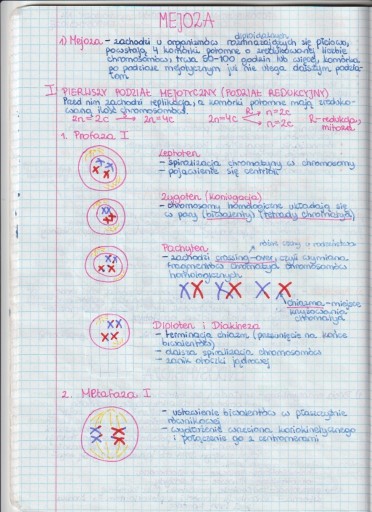 MEJOZA
diploidalnych
1) Mejoza - zachodzi u organizmów rozmnażających się płciowo,
powstają 4 komórki potomne o zredukowanej liczbie
chromosomów; trwa 50-100 godzin lub więcej, komórka
po podziale mejotycznym już nie ulega dalszym podzia-
łom
I PIERWSZY PODZIAŁ MEJOTYCZNY (PODZIAŁ REDUKCYJNY)
Przed nim zachodzi replikacja, a komórki potomne mają zreduko-
waną ilość chromosomów.
2n=2c → 2n=4c 2n=4c R! n=2c n=2c R-redukcja,
mitoza
1. Profaza I
Leptoten
- spiralizacja chromatyny w chromosomy
- pojawienie się centrioli
Zygoten (Koniugacja)
- chromosomy homologiczne układają się
w pary (biwalenty) (tetrady chromatyd)
Pachyten
- zachodzi crossing-over czyli wymiana
fragmentów chromatyd chromosomów
homologicznych
chiazma - miejsce
krzyżowania
chromatyd
Diploten i Diakineza
- terminacja chiazm (przesunięcie na końce
biwalentów)
- dalsza spiralizacja chromosomów
- zanik otoczki jądrowej
2. Metafaza I
- ustawienie biwalentów w płaszczyźnie
równikowej
- wytworzenie wrzeciona kariokinetycznego
i połączenie go z centromerami